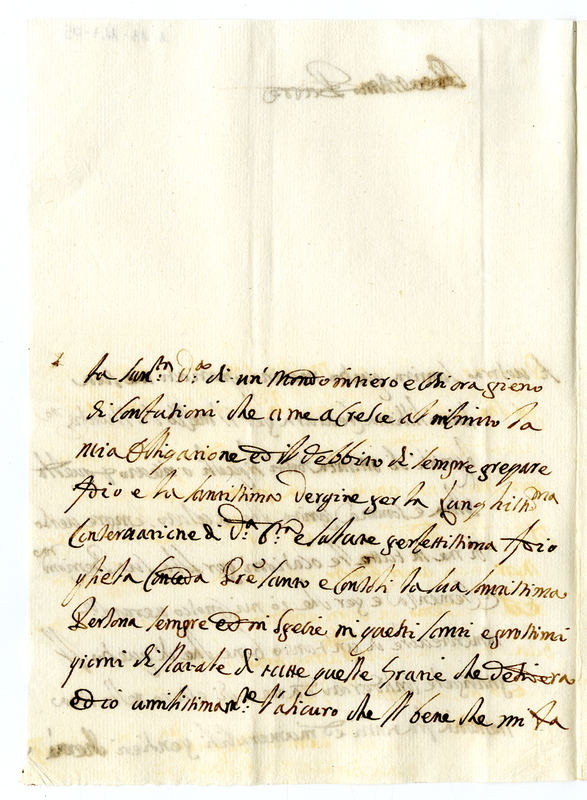 la Sant.tà V.a di un' Mondo intiero e Chi ora pieno
di Confusioni che a me acresce al infinito la
mia Obligazione ed il debbito di sempre pregare
Idio e la Santissima Vergine per la Lunghissima
Conservazione di V.a e salute perfettissima Idio
gliela Conceda Pre Santo e Consoli la sua Santissima
Persona sempre ed in Specie in questi Santi e prossimi
giorni di Natale di tutte quelle Grazie che desidera
ed io umilissimamte l'asicuro che Il bene che mi fa